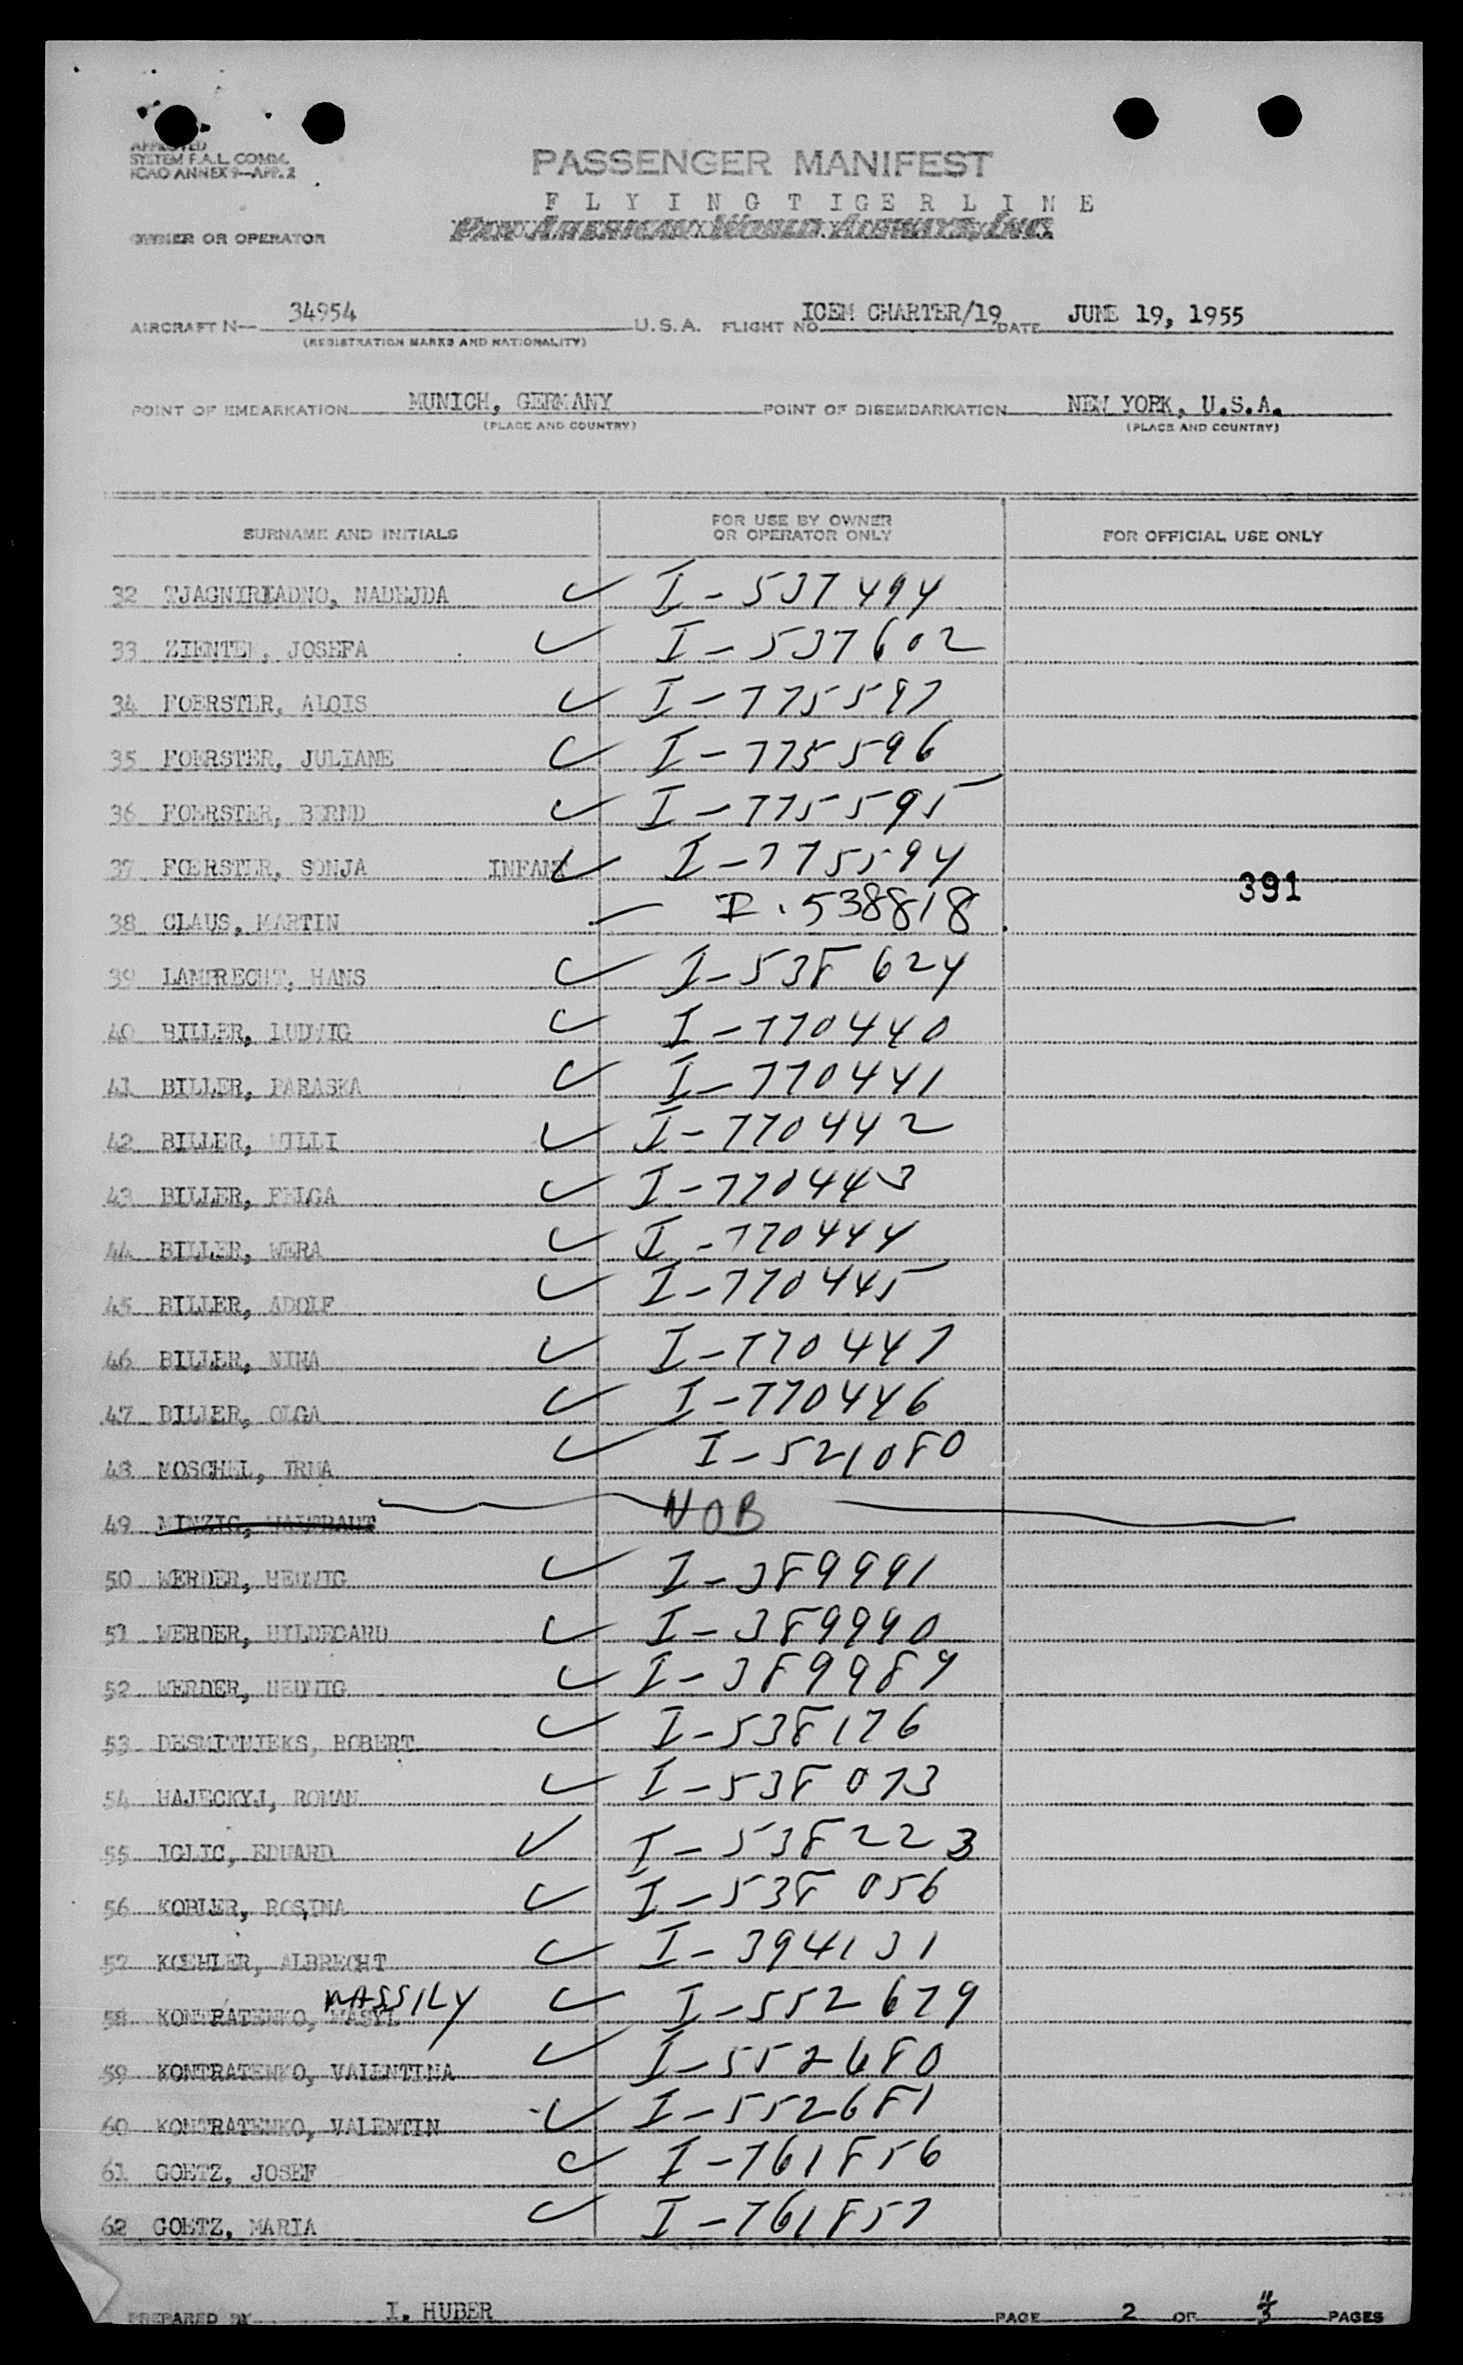 APPROVED
SYSTEM F.A.L. COMM.
ICAO ANNEX 9—APP. 2
PASSENGER MANIFEST
F L Y I N G T I G E R L I N E
PAN AMERICAN WORLD AIRWAYS, INC.
OWNER OR OPERATOR
AIRCRAFT N— 34954 U.S.A. FLIGHT NO. ICEM CHARTER/19 DATE JUNE 19, 1955
(REGISTRATION MARKS AND NATIONALITY)
POINT OF EMBARKATION MUNICH, GERMANY POINT OF DISEMBARKATION NEW YORK, U.S.A.
(PLACE AND COUNTRY) (PLACE AND COUNTRY)
SURNAME AND INITIALS FOR USE BY OWNER OR OPERATOR ONLY FOR OFFICIAL USE ONLY
32 TJAGNIREADNO, NADEJDA ✓ I-537494
33 ZIENTEK, JOSEFA ✓ I-537602
34 FOERSTER, ALOIS ✓ I-775597
35 FOERSTER, JULIANE ✓ I-775596
36 FOERSTER, BERND ✓ I-775595
37 FOERSTER, SONJA INFANT ✓ I-775594
391
38 CLAUS, MARTIN — I.538818
39 LAMPRECHT, HANS ✓ I-538624
40 BILLER, LUDWIG ✓ I-770440
41 BILLER, PARASKA ✓ I-770441
42 BILLER, WILLI ✓ I-770442
43 BILLER, FELGA ✓ I-770443
44 BILLER, WERA ✓ I-770444
45 BILLER, ADOLF ✓ I-770445
46 BILLER, NINA ✓ I-770447
47 BILLER, OLGA ✓ I-770446
48 MOSCHEL, IRMA ✓ I-521080
49 MINZIG, WALTRAUT NOB
50 WERDER, HEDWIG ✓ I-389991
51 WERDER, HILDEGARD ✓ I-389990
52 WERDER, HEDWIG ✓ I-389989
53 DESMITNIEKS, ROBERT ✓ I-538176
54 HAJECKYJ, ROMAN ✓ I-538073
55 IGLIC, EDUARD ✓ I-538223
56 KOBLER, ROSINA ✓ I-538056
57 KOEHLER, ALBRECHT ✓ I-394131
WASSILY
58 KONTRATENKO, WASYL ✓ I-552679
59 KONTRATENKO, VALENTINA ✓ I-552680
60 KONTRATENKO, VALENTIN ✓ I-552681
61 GOETZ, JOSEF ✓ I-761856
62 GOETZ, MARIA ✓ I-761857
PREPARED BY I. HUBER PAGE 2 OF 3 PAGES